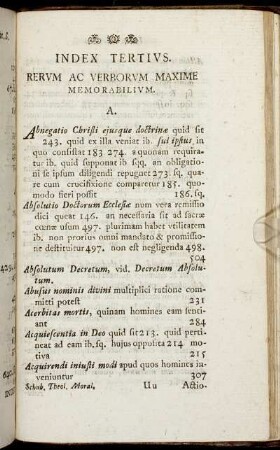 INDEX TERTIVS.
RERVM AC VERBORVM MAXIME
MEMORABILIVM.
A.
Abnegatio Christi ejusque doctrinæ quid sit
243. quid ex illa veniat ib. sui ipsius, in
quo consistat 183 274. a quonam requira-
tur ib. quid supponat ib sqq. an obligatio-
ni se ipsum diligendi repugnet 273. sq. qua-
re cum crucifixione comparetur 185. quo-
modo fieri possit 186. sq.
Absolutio Doctorum Ecclesiæ num vera remissio
dici queat 146. an necessaria sit ad sacræ
cœnæ usum 497. plurimam habet vtilitatem
ib. non prorsus omni mandato & promissio-
ne destituitur 497. non est negligenda 498.
504
Absolutum Decretum, vid. Decretum Absolu-
tum.
Abusus nominis divini multiplici ratione com-
mitti potest 231
Acerbitas mortis, quinam homines eam senti-
ant 284
Acquiescentia in Deo quid sit 213. quid perti-
neat ad eam ib. sq. hujus opposita 214 mo-
tiva 215
Acquirendi iniusti modi apud quos homines in-
veniuntur 307
Schub. Theol. Moral. Uu Actio-